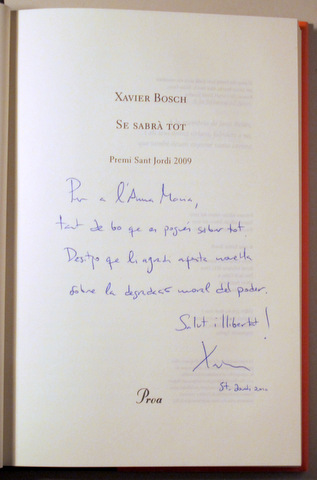 XAVIER BOSCH
SE SABRÀ TOT
Premi Sant Jordi 2009
Per a l'Anna Maria,
tant de bo que es pogués saber tot.
Desitjo que li agradi aquesta novel·la
sobre la degradació moral del poder.
Salut i llibertat!
Xavier
St. Jordi 2010
Proa